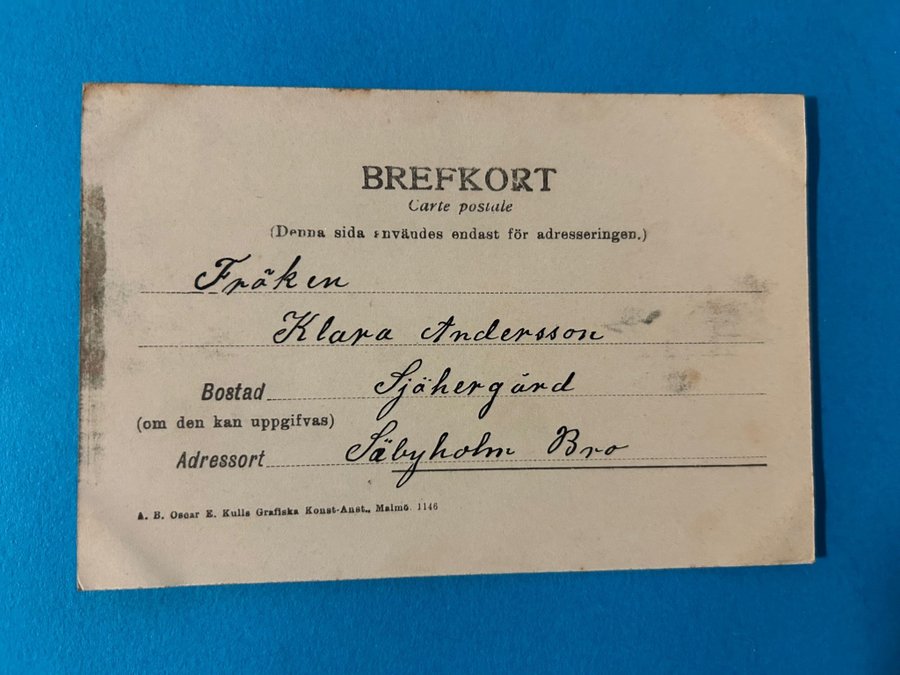 BREFKORT
Carte postale
(Denna sida användes endast för adresseringen.)
Fröken
Klara Andersson
Bostad Sjöhergård
(om den kan uppgifvas)
Adressort Säbyholm Bro
A. B. Oscar E. Kulls Grafiska Konst-Anst., Malmö. 1146